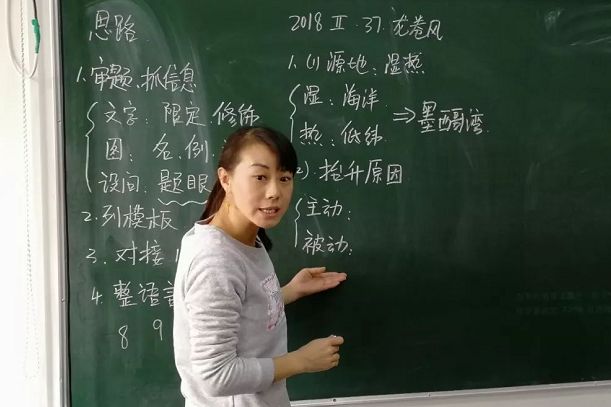 思路
1.审题、抓信息
文字：限定.修饰
图：名.例.
设问：题眼
2.列模板
3.对接
4.整语言
8 9
2018 Ⅱ 37. 龙卷风
1.(1)源地：湿热
湿：海洋
热：低纬
⇒墨西哥湾
2).抬升原因
主动：
被动：